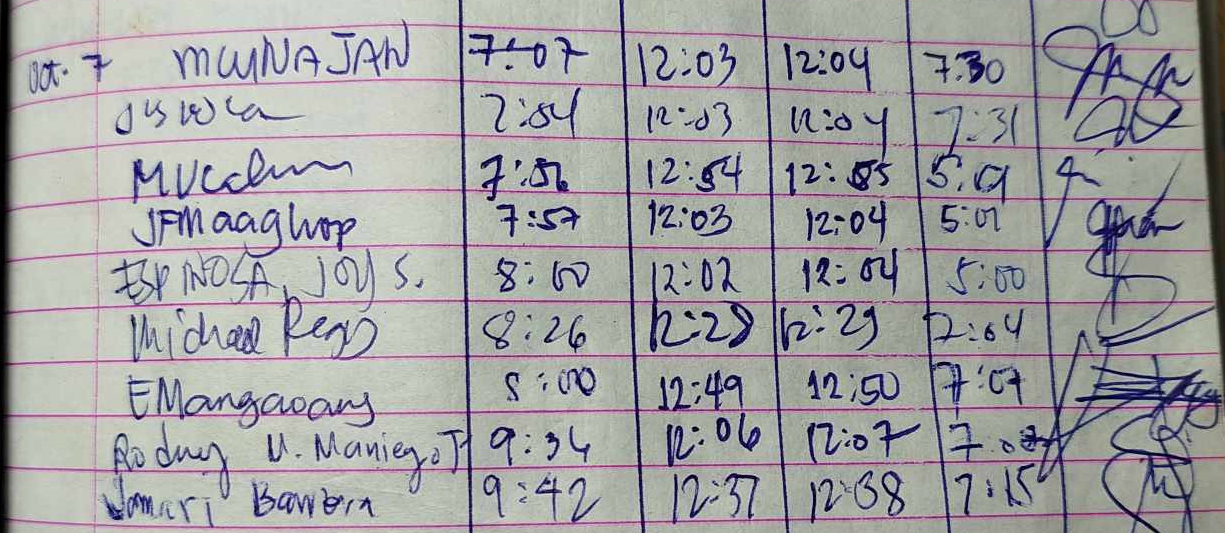 Oct. 7 MUNAJAN 7:07 12:03 12:04 7:30
7:54 12:03 12:04 7:31
7:56 12:54 12:55 5:01
JFMaaghop 7:57 12:03 12:04 5:01
ESPINOSA, JOY S. 8:00 12:02 12:04 5:00
Michael 8:26 12:28 12:29 7:04
EMangaoang 8:00 12:49 12:50 7:07
Rodney U. Maniego, Jr 9:34 12:06 12:07 7:07
9:42 12:37 12:38 7:15